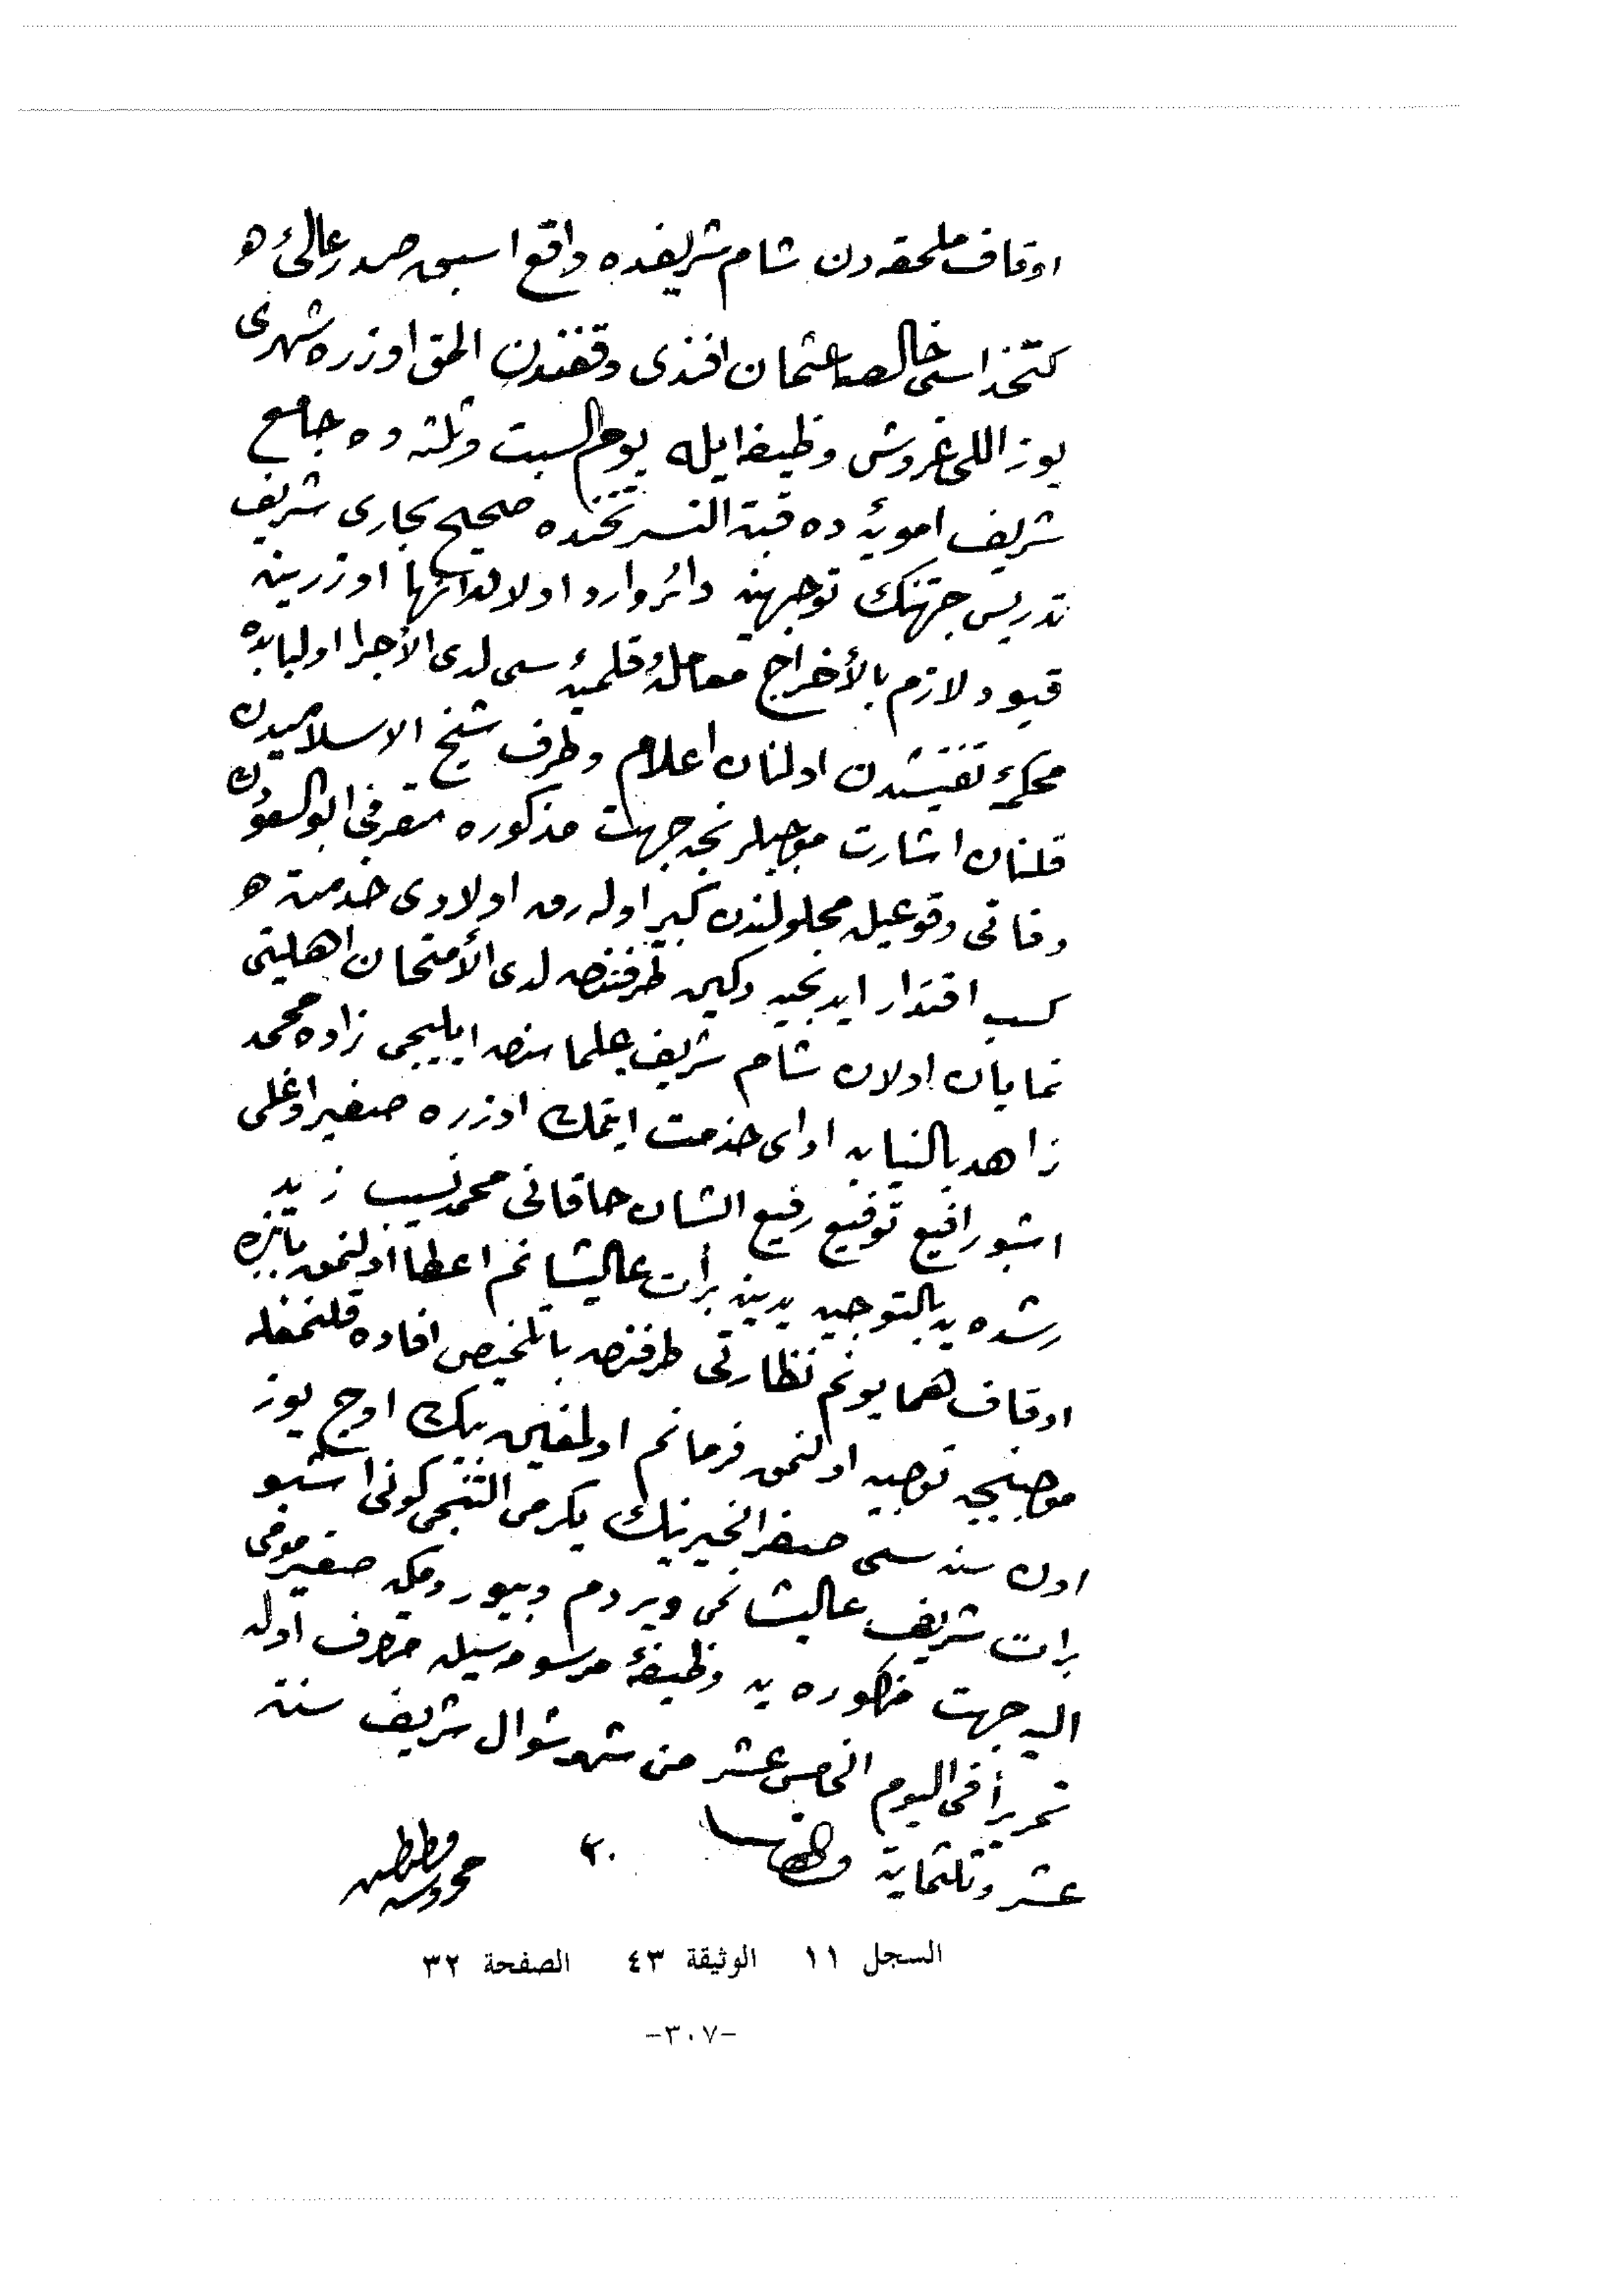 اوقاف ملحقه دن شام شريفده واقع اسبق صدر عالی
كتخداسی خالصا عثمان افندی وقفندن الحق اوزره شهری
يوز اللی غروش وظيفه ايله يوم السبت وثلثه ده جامع
شريف امويۀ ده قبة النسر تحتنده صحيح بخاری شريف
تدريس جهتنك توجهنه دائر وارد اولان انها اوزرينه
قيود لازم بالأخراج معاملۀ قلميه سی لدی الأجرا اولبابده
محكمۀ تفتيشدن اولنان اعلام وطرف شيخ الاسلاميدن
قلنان اشارت موجبلرنجه جهت مذكوره متصرفی ابو السعودك
وفاتی وقوعيله محلولندن كبير اوله رق اولادی خدمته
كسب اقتدار ايدنجيه دكين طرفندن لدی الأمتحان اهليتی
نمايان اولان شام شريف علماسندن زاده محمد
زاهد بالنيابه ادای خدمت ايتمك اوزره صغير اوغلی
اشبو رافع توقيع رفيع الشان خاقانی محمد نسيب زيد
رشده يه بالتوجيه يدينه برأت عاليشانم اعطا اولنمق بابنده
اوقاف همايونم نظارتی طرفندن بالتلخيص افاده قلنمغله
موجبنجه توجيه اولنمق فرمانم اولمغين بيك اوچ يوز
اون سنه سی صفر الخيرينك يكرمی التنجی كونی اشبو
برات شريف عاليشانمی ويردم وبيوردمكه صغير مومی
اليه جهت مذكوره يه وظيفۀ مرسومه سيله متصرف اوله
تحريراً فی اليوم الخامس عشر من شهر شوال شريف سنة
عشر وثلثماية والف ٢٠
محروسه قسطنطينيه
السجل ١١ الوثيقة ٤٣ الصفحة ٣٢
-٣٠٧-